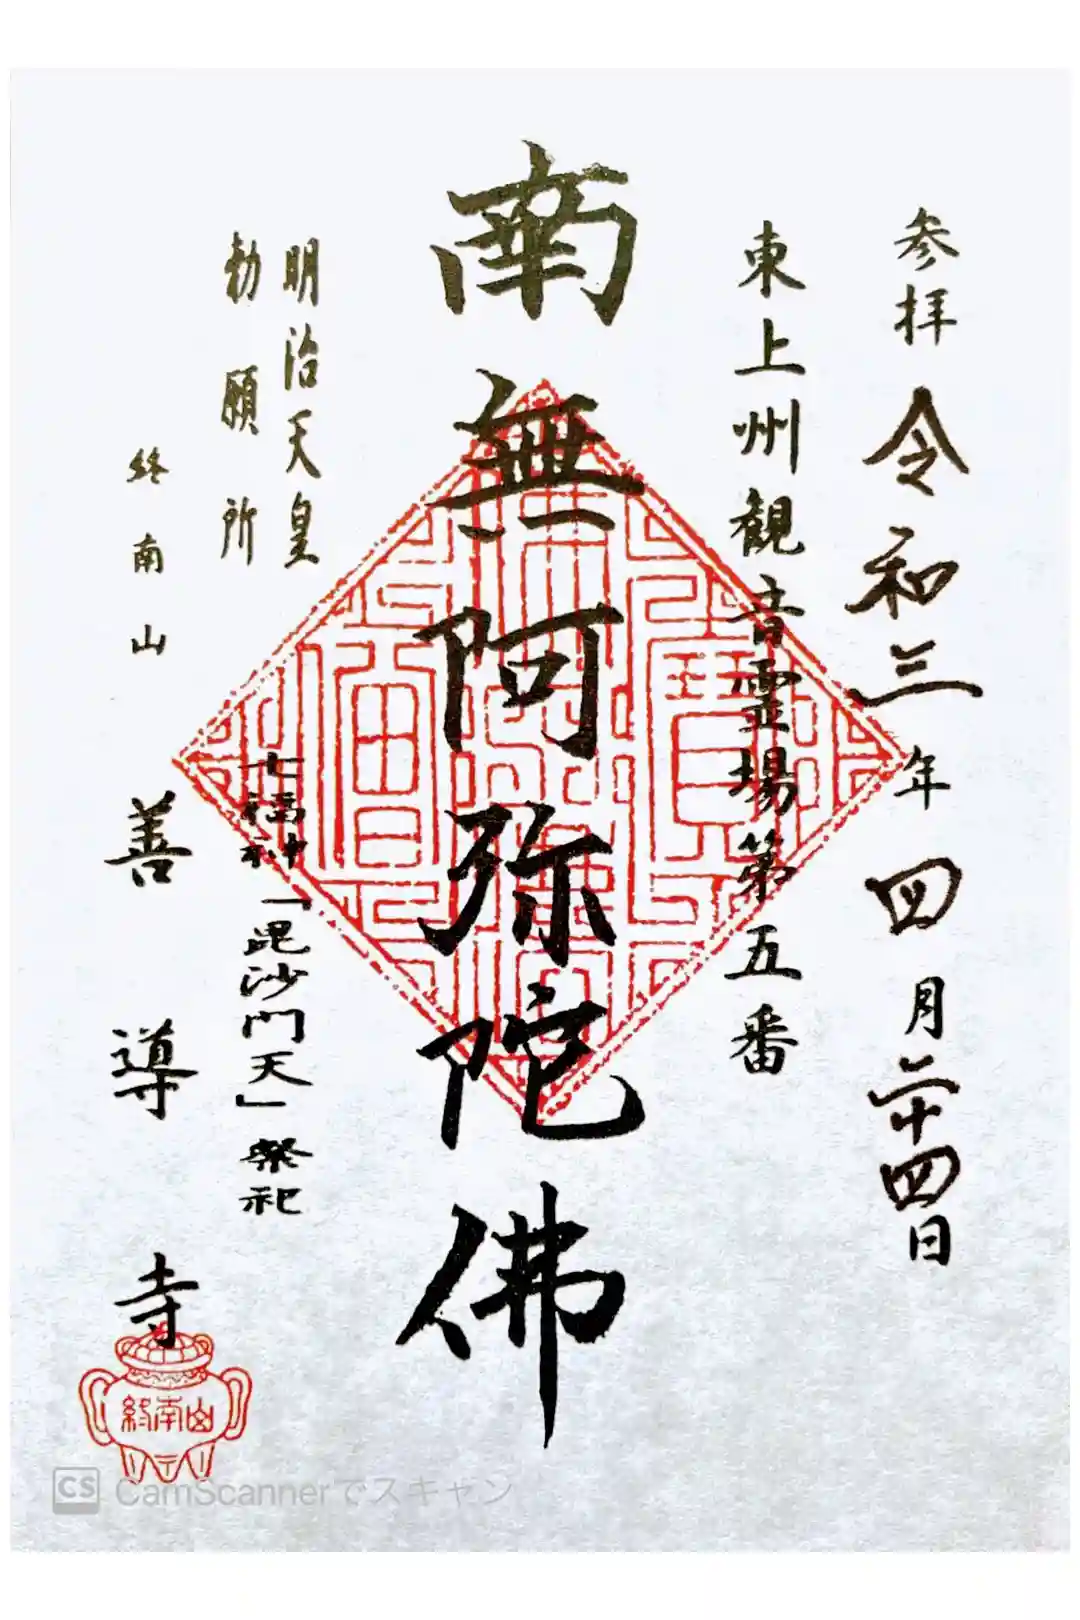 参拝 令和三年四月二十四日
東上州観音霊場第五番
南無阿弥陀佛
明治天皇
勅願所
七福神「毘沙門天」祭祀
終南山 善導寺
終南山
CS CamScannerでスキャン